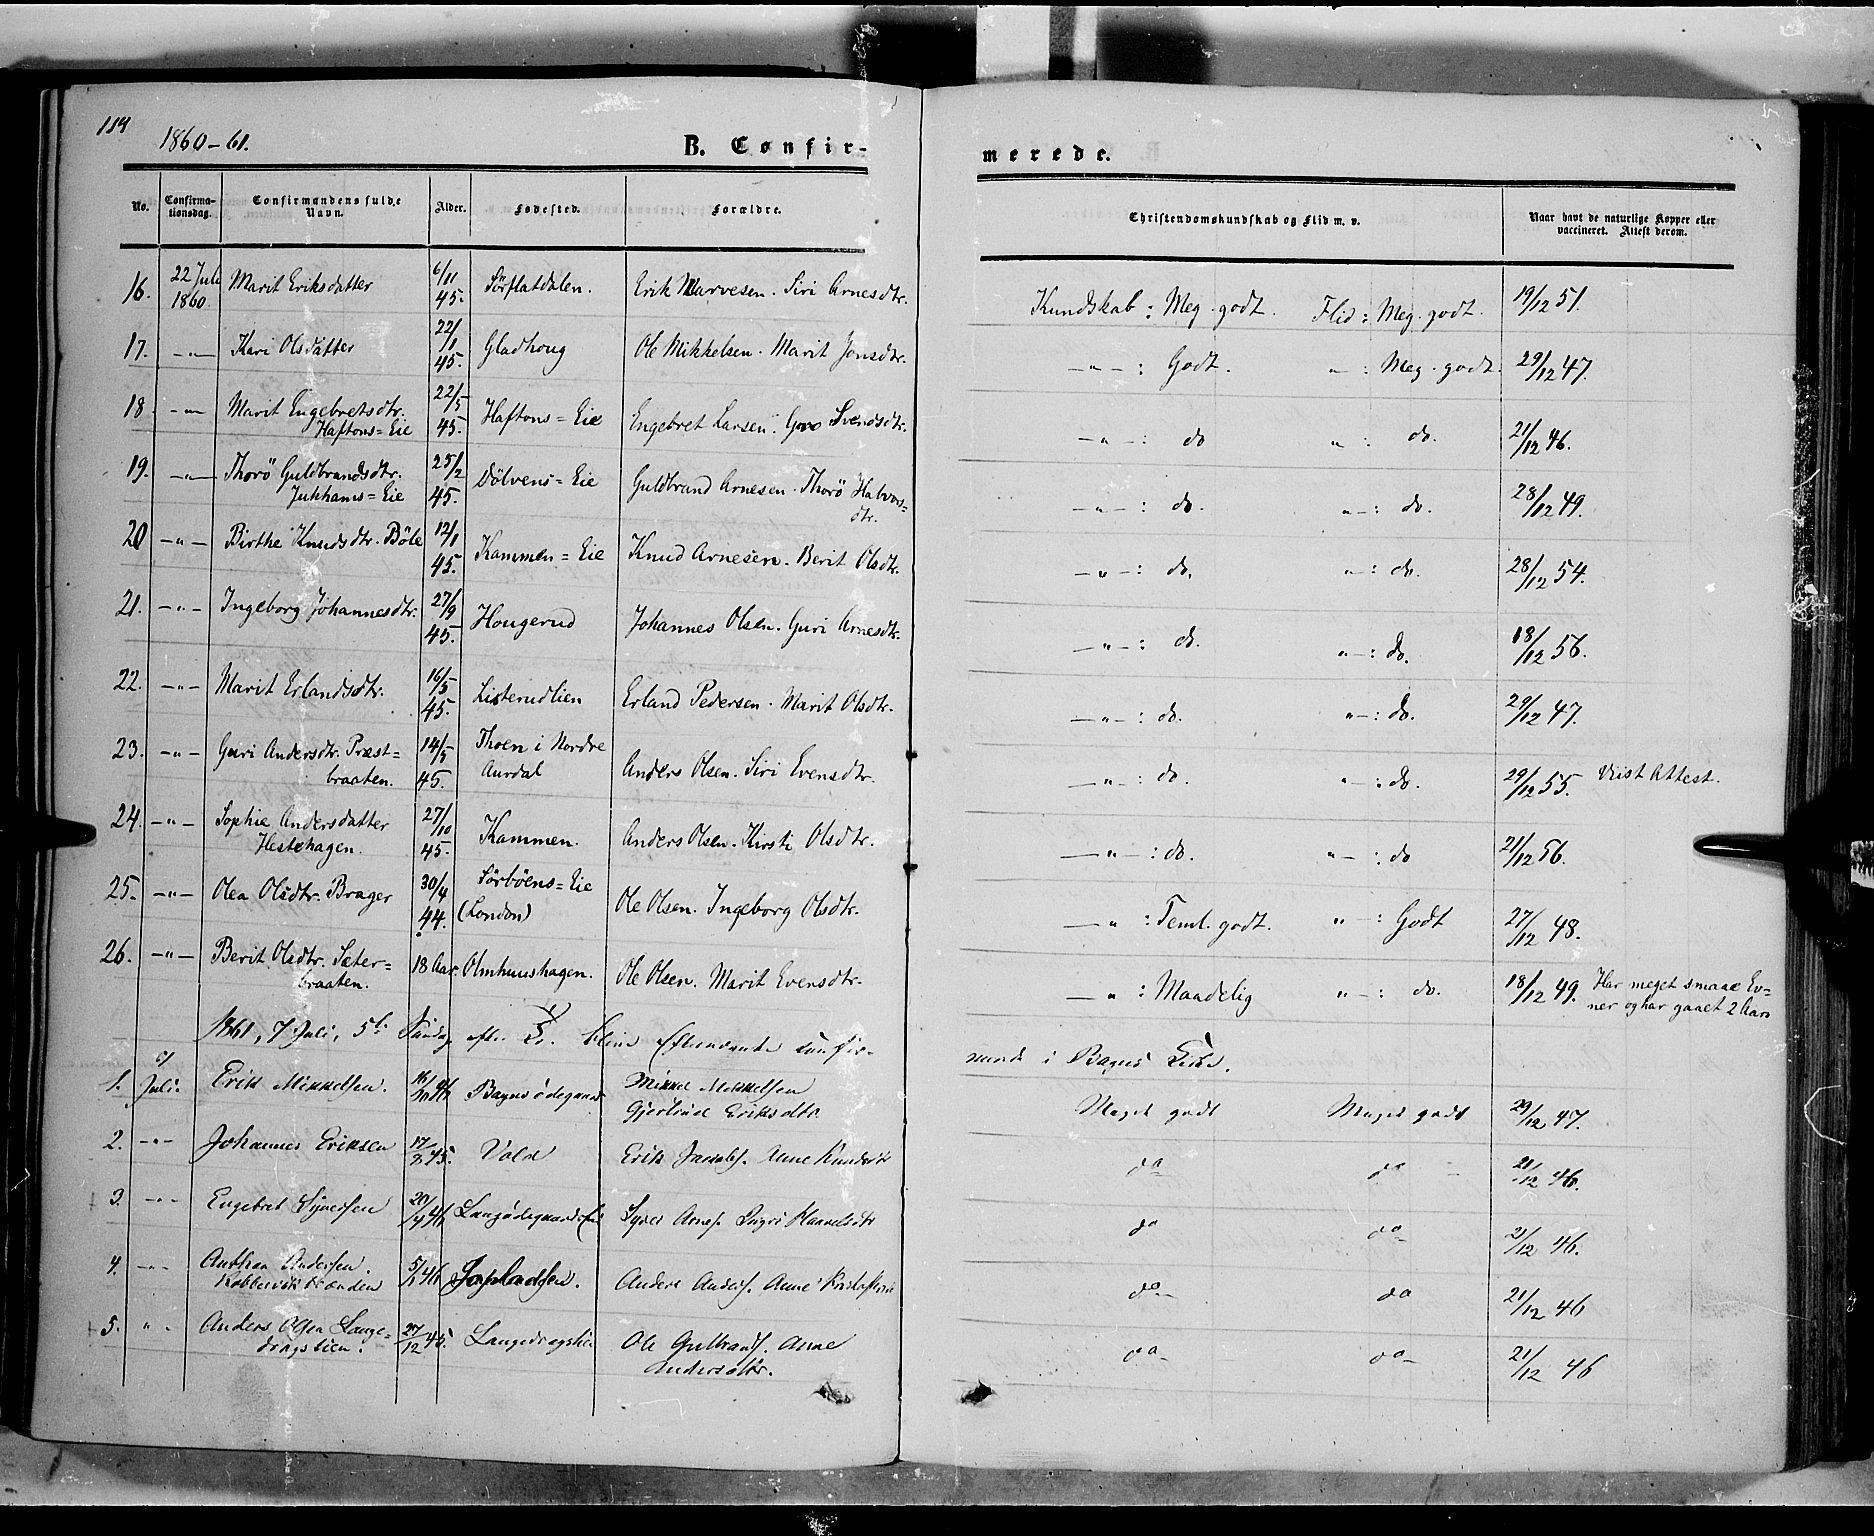 114
1860-61.
B. Confir-
merede.
No.
Confirma-
tionsdag.
Confirmandens fulde
Navn.
Alder.
Fødested.
Forældre.
Christendomskundskab og Flid m. v.
Naar havt de naturlige Kopper eller
vaccineret. Attest derom.
16. 22 Juli 1860. Marit Eriksdatter 6/11 45. Sörflatdalen. Erik Marvesen. Siri Arnesdtr. Kundskab: Meg. godt. Flid: Meg. godt. 19/12 51.
17. -"- Kari Olsdatter 22/1 45. Gladhoug Ole Mikkelsen. Marit Jonsdtr. -"-: Godt. ": Meg. godt. 29/12 47.
18. -"- Marit Engebretsdtr. 22/5 45. Haftons=Eie Engebret Larsen. Goro Svendsdtr. -"-: do ": do. 21/12 46.
Haftons=Eie
19. -"- Thorö Guldbrandsdtr. 25/2 45. Dölvens=Eie Guldbrand Arnesen. Thorö Halvors= -"-: do. "-: do. 28/12 49.
Jukhams=Eie dtr.
20 -"- Birthe Knudsdtr. Böle 12/1 45. Kammen=Eie Knud Arnesen. Berit Olsdtr. -"-: do. "-: do. 28/12 54.
21. -"- Ingeborg Johannesdtr. 27/9 45. Hougerud Johannes Olsen. Guri Arnesdtr. -"-: do. "-: do. 18/12 56.
22. -"- Marit Erlandsdtr. 16/5 45. Listerudlien Erland Pedersen. Marit Olsdtr. -"-: do. "-: do. 29/12 47.
23. -"- Guri Andersdtr. Præst= 14/5 45. Thoen i Nordre Anders Olsen. Siri Evensdtr. -"-: do. "-: do. 29/12 55. Viist Attest.
braaten. Aurdal
24. -"- Sophie Andersdatter 27/10 45. Kammen. Anders Olsen. Kirsti Olsdtr. -"-: do. "-: do 21/12 56.
Hestehagen.
25. -"- Olea Olsdtr. Brager 30/4 44. Sörböens=Eie Ole Olsen. Ingeborg Olsdtr. -": Teml. godt. "-: Godt 27/12 48.
(London)
26. -"- Berit Olsdtr. Sæter= 18 Aar. Olmhuushagen. Ole Olsen. Marit Evensdtr. -": Maadelig "-: do. 18/12 49. Har meget smaae Ev=
braaten. ner og har gaaet 2 Aar
1861, 7 Juli, 5te Söndag efter Tr. bleve efternævnte confir-
merede i Bagns Kirke.
1. 7/ Juli. Erik Mikkelsen. 46 Bagnsödegaard Mikkel Mikkelsen Meget godt Meget godt 29/12 47.
Gjertrud Eriksdtr
2. -"- Johannes Eriksen 17/8 45. Vold Erik Jacobs. Anne Knudsdtr do do 21/12 46.
3. -"- Engebret Syversen 20/4 46 Langödegaards Syver Arnes. Ingri Haavelsdtr do do 21/12 46.
4. -"- Anders. 5/1 46 Anders Anders. Anne do do 21/12 46
5. " - Anders Olsen Lange= 27/12 45. Langedragslien Ole Gulbrands. Anne do do 21/12 46
dragslien. Andersdtr.